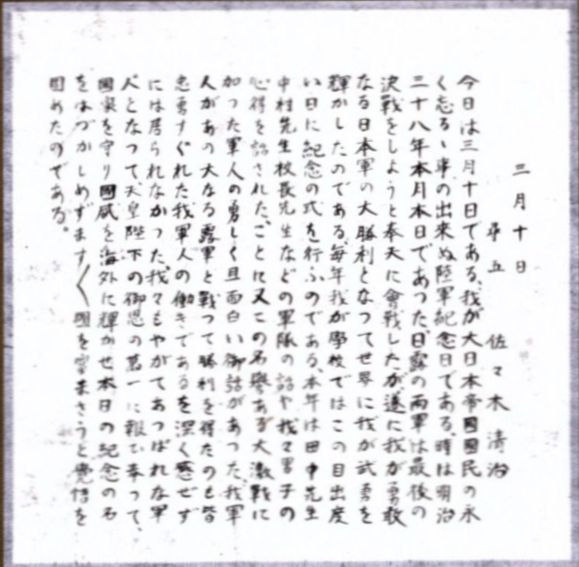 三月十日
尋五 佐々木清治
今日は三月十日である、我が大日本帝國國民の永
く忘るゝ事の出來ぬ陸軍紀念日である、時は明治
三十八年本月本日であつた、日露の両軍は最後の
決戰をしようと奉天に會戰したが遂に我が勇敢
なる日本軍の大勝利となつて世界に我が武勇を
輝かしたのである、毎年我が學校ではこの目出度
い日に紀念の式を行ふのである、本年は田中先生
中村先生校長先生などの軍隊の話や我々男子の
心得を話された、ことに又この名譽ある大激戰に
加つた軍人の勇しく且面白い御話があつた、我軍
人があの大なる露軍と戰つて勝利を得たのも皆
忠勇すぐれた我軍人の働きであるを深く感ぜず
には居られなかつた我々もやがてあつぱれな軍
人となつて天皇陛下の御恩の萬一に報じ奉つて、
國家を守り國威を海外に輝かせ本日の紀念の名
をはづかしめずます〳〵國を富まさうと覺悟を
固めたのである。